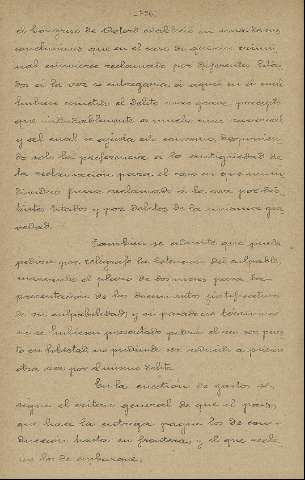 el Congreso de Oxford estableció en una de sus
conclusiones que en el caso de que un crimi
nal estuviere reclamado por diferentes Esta
dos a la vez se entregaria a aquel en el cual
hubiese cometido el delito mas grave, precepto
que indudablemente es mucho mas racional
y al cual se ajusta este convenio, disponiendo
solo la preferencia a la antigüedad de
la reclamacion para el caso en que un in
dividuo fuese reclamado a la vez por dis
tintos Estados y por delitos de la misma gra
vedad.
Tambien se advierte que puede
pedirse por telégrafo la detencion del culpable
marcando el plazo de dos meses para la
presentacion de los documentos justificativos
de su culpabilidad; y si pasado ese término
no se hubiesen presentado podrá el reo ser pues
to en libertad no pudiendo ser detenido a prision
otra vez por el mismo delito.
En la cuestion de gastos se
sigue el criterio general de que el pais
que hace la entrega pague los de con-
duccion hasta su frontera, y el que recla
ma los de embarque.